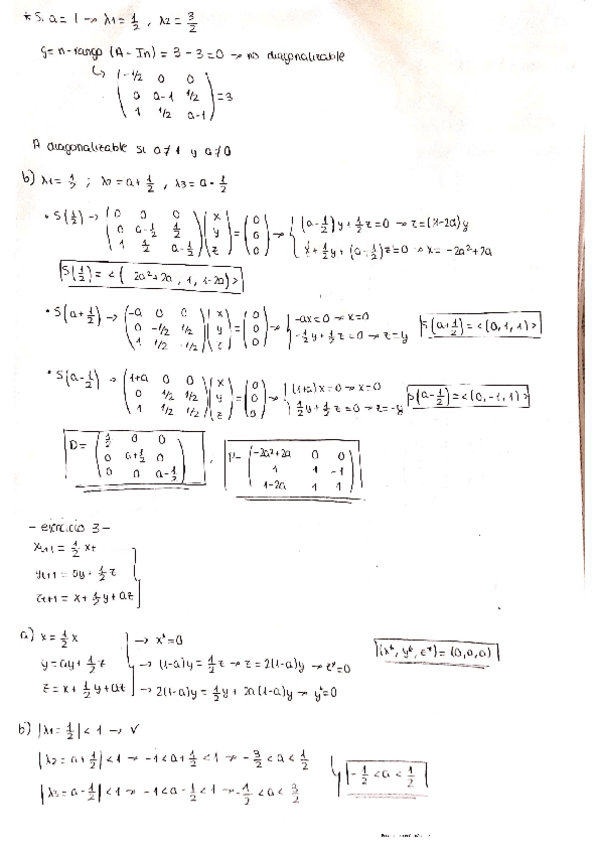 * Si a = 1 → λ1 = 1/2 , λ2 = 3/2
g = n - rango (A - In) = 3 - 3 = 0 → no diagonalizable
↳ (1-1/2 0 0 ; 0 a-1 1/2 ; 1 1/2 a-1) = 3
A diagonalizable si a≠1 y a≠0
b) λ1 = 1/2 ; λ2 = a + 1/2 , λ3 = a - 1/2
• S(1/2) → (0 0 0 ; 0 a-1/2 1/2 ; 1 1/2 a-1/2) (x ; y ; z) = (0 ; 0 ; 0) → { (a-1/2)y + 1/2 z = 0 → z = (1-2a)y ; x + 1/2 y + (a-1/2)z = 0 → x = -2a²+2a
S(1/2) = < ( 2a²+2a , 1 , 1-2a) >
• S(a+1/2) → (-a 0 0 ; 0 -1/2 1/2 ; 1 1/2 -1/2) (x ; y ; z) = (0 ; 0 ; 0) → { -ax = 0 → x = 0 ; -1/2 y + 1/2 z = 0 → z = y S(a+1/2) = < (0, 1, 1) >
• S(a-1/2) → (1+a 0 0 ; 0 1/2 1/2 ; 1 1/2 1/2) (x ; y ; z) = (0 ; 0 ; 0) → { (1+a)x = 0 → x = 0 ; 1/2 y + 1/2 z = 0 → z = -y S(a-1/2) = < (0, -1, 1) >
D = (1/2 0 0 ; 0 a+1/2 0 ; 0 0 a-1/2) , P = (-2a²+2a 0 0 ; 1 1 -1 ; 1-2a 1 1)
- ejercicio 3 -
xt+1 = 1/2 xt
yt+1 = ay + 1/2 z
zt+1 = x + 1/2 y + az
a) x = 1/2 x → x* = 0
y = ay + 1/2 z → (1-a)y = 1/2 z → z = 2(1-a)y → z* = 0 (x*, y*, z*) = (0,0,0)
z = x + 1/2 y + az → 2(1-a)y = 1/2 y + 2a(1-a)y → y* = 0
b) |λ1 = 1/2| < 1 → ✓
|λ2 = a + 1/2| < 1 → -1 < a + 1/2 < 1 → -3/2 < a < 1/2
|λ3 = a - 1/2| < 1 → -1 < a - 1/2 < 1 → -1/2 < a < 3/2
-1/2 < a < 1/2